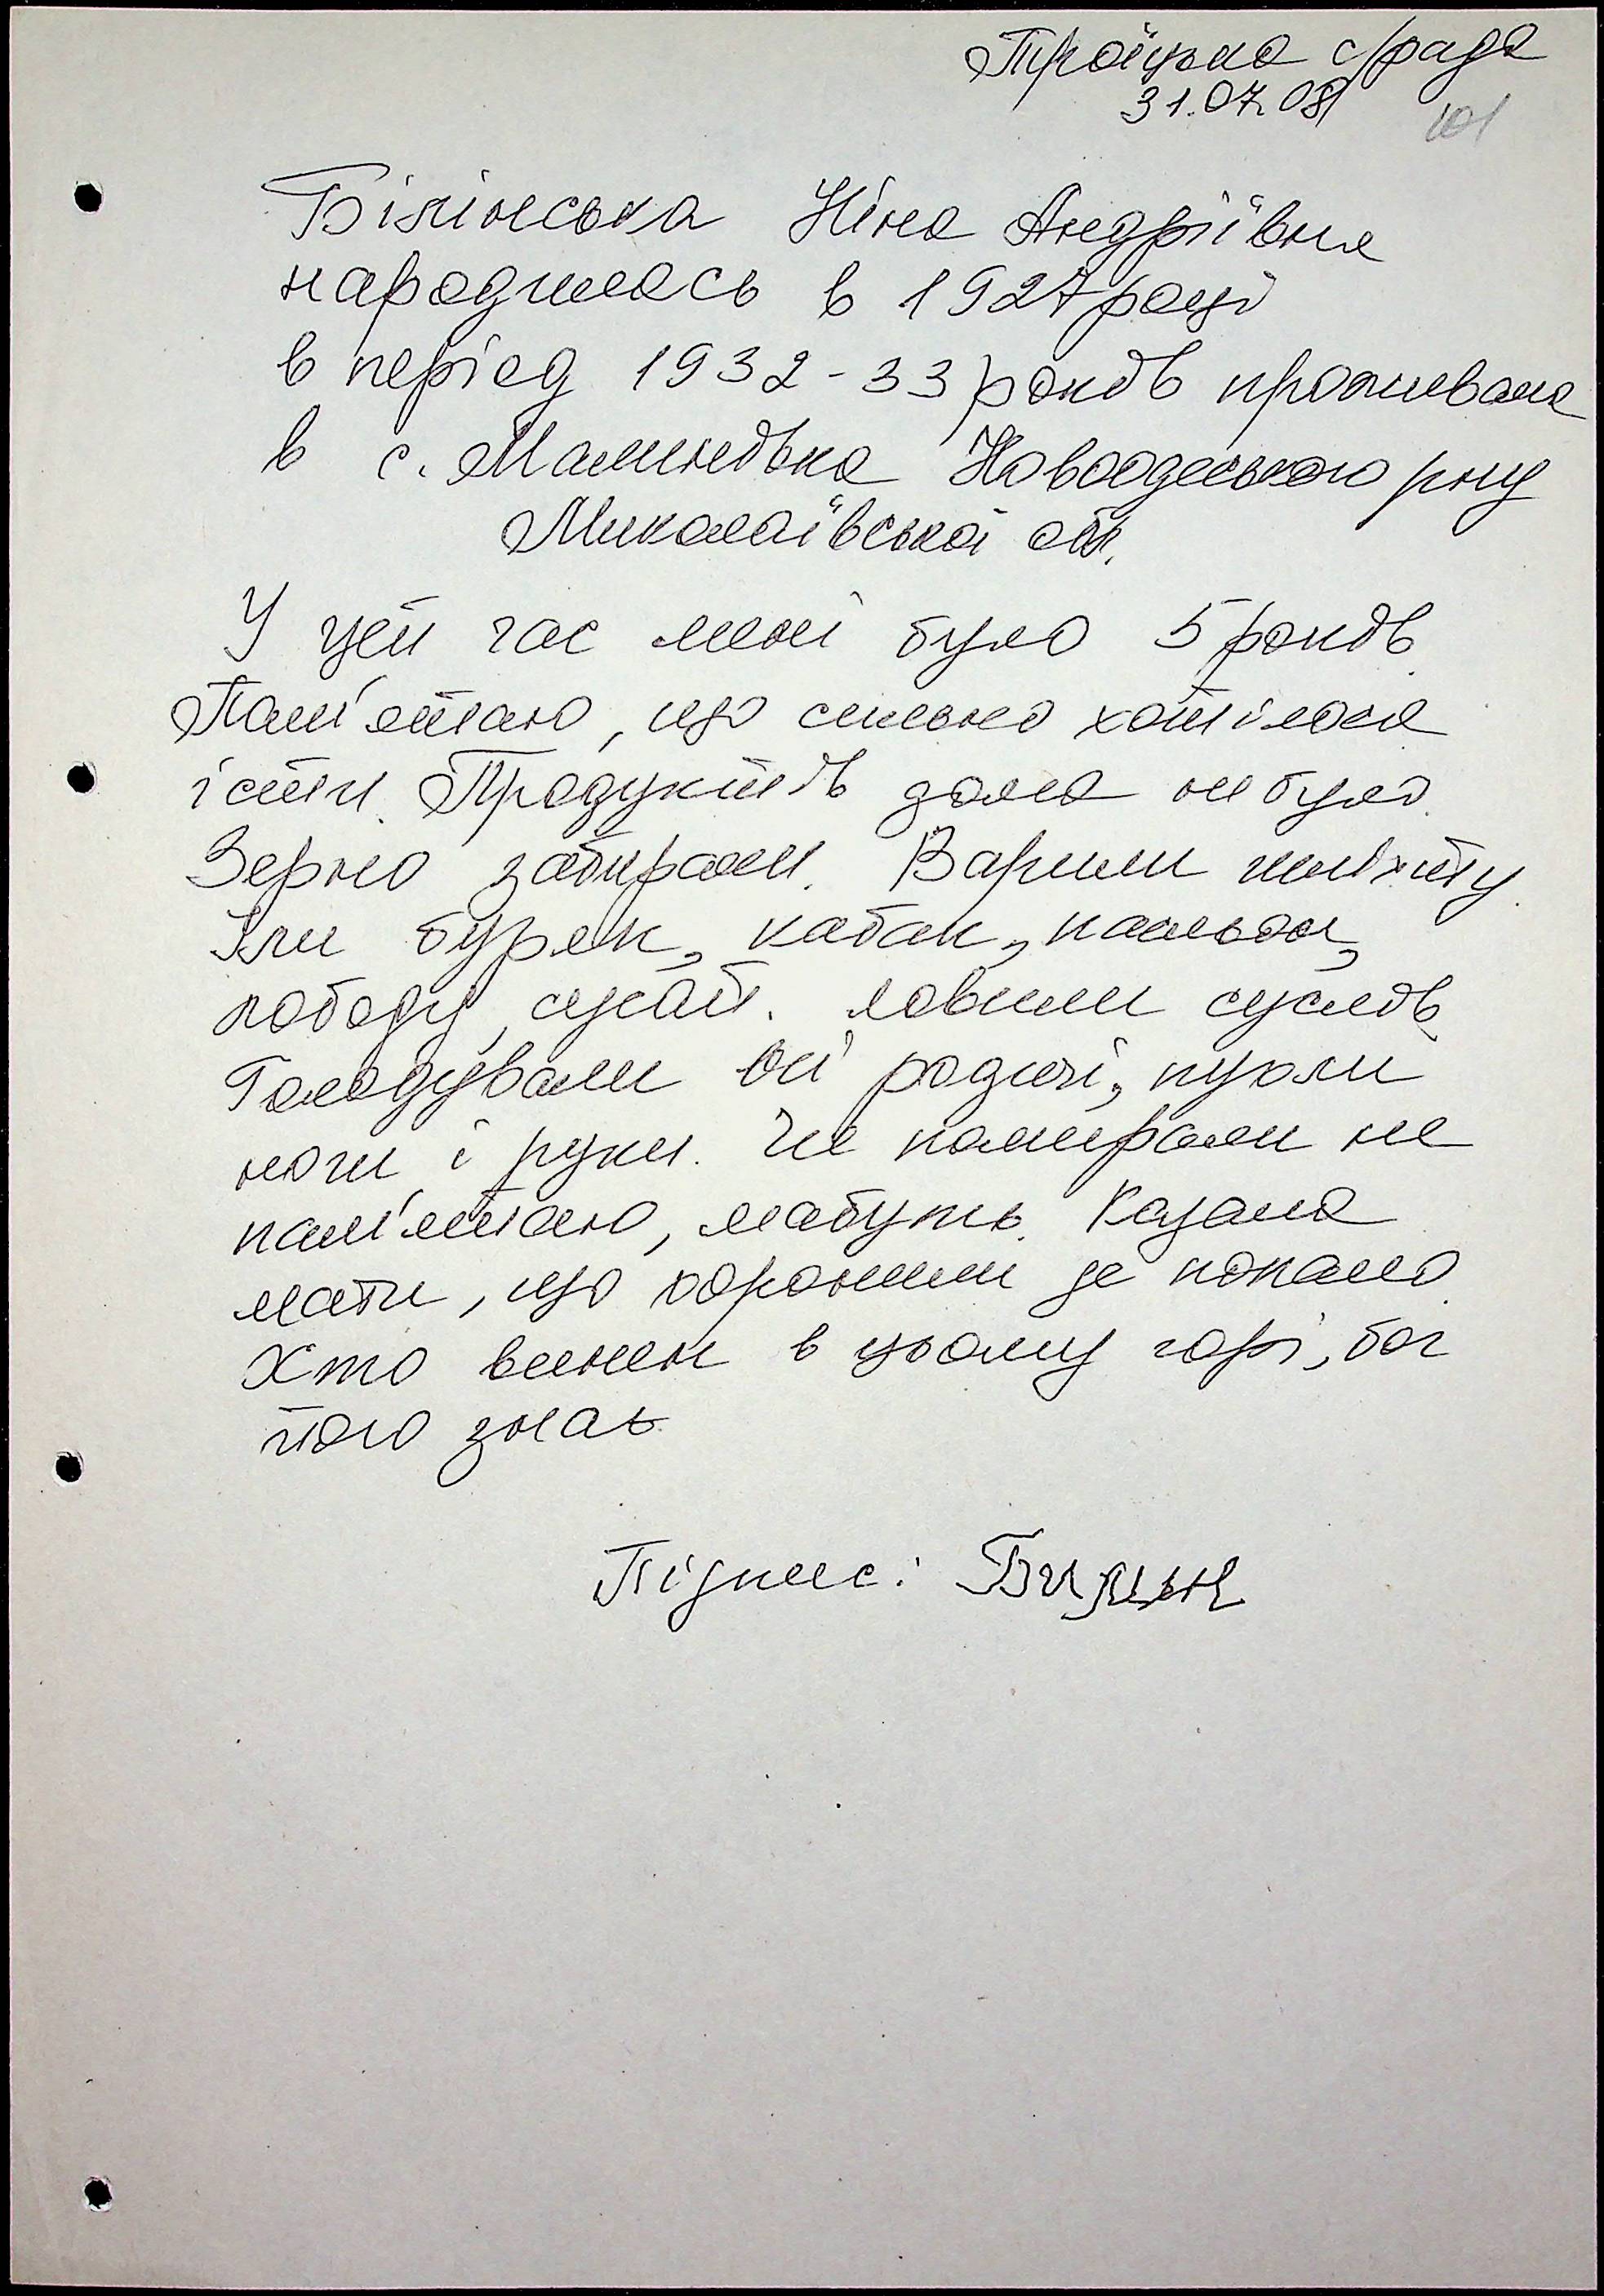 Троїцька с/рада
31.07.08
101
Білінська Ніна Андріївна
народилась в 1927 році
в період 1932-33 років проживала
в с. Малинівка Новоодеського р-ну
Миколаївської обл.
У цей час мені було 5 років.
Пам'ятаю, що сильно хотілося
їсти. Продуктів дома не було.
Зерно забирали. Варили
Їли буряк, кабак, пасльон,
лободу, . Ловили сусликів.
Голодували всі родичі, пухли
ноги і руки. Чи помирали не
пам'ятаю, мабуть. Казала
мати, що хоронили де попало.
Хто винен в цьому горі, бог
його знає
Підпис: Билин